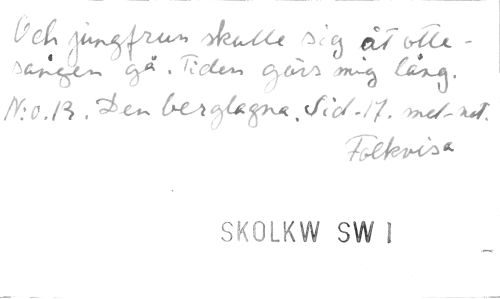 Och jungfrun skulle sig åt otte-
sången gå. Tiden görs mig lång.
N:o. 13. Den berglagna. Sid. 17. mel-not.
Folkvisa
SKOLKW SW I